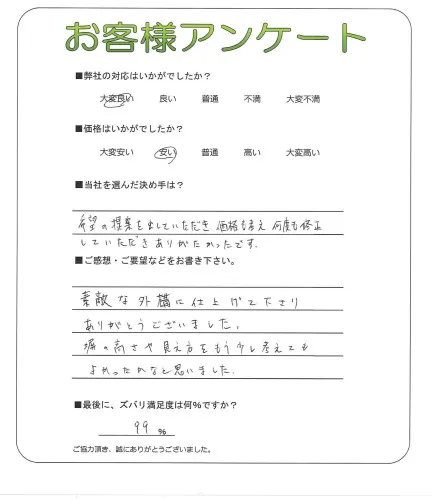 お客様アンケート
■弊社の対応はいかがでしたか？
大変良い 良い 普通 不満 大変不満
■価格はいかがでしたか？
大変安い 安い 普通 高い 大変高い
■当社を選んだ決め手は？
希望の提案を出していただき 価格も考え 何度も修正
していただきありがたかったです。
■ご感想・ご要望などをお書き下さい。
素敵な外構に仕上げて下さり
ありがとうございました。
塀の高さや見え方をもう少し考えても
よかったかなと思いました。
■最後に、ズバリ満足度は何%ですか？
99 %
ご協力頂き、誠にありがとうございました。